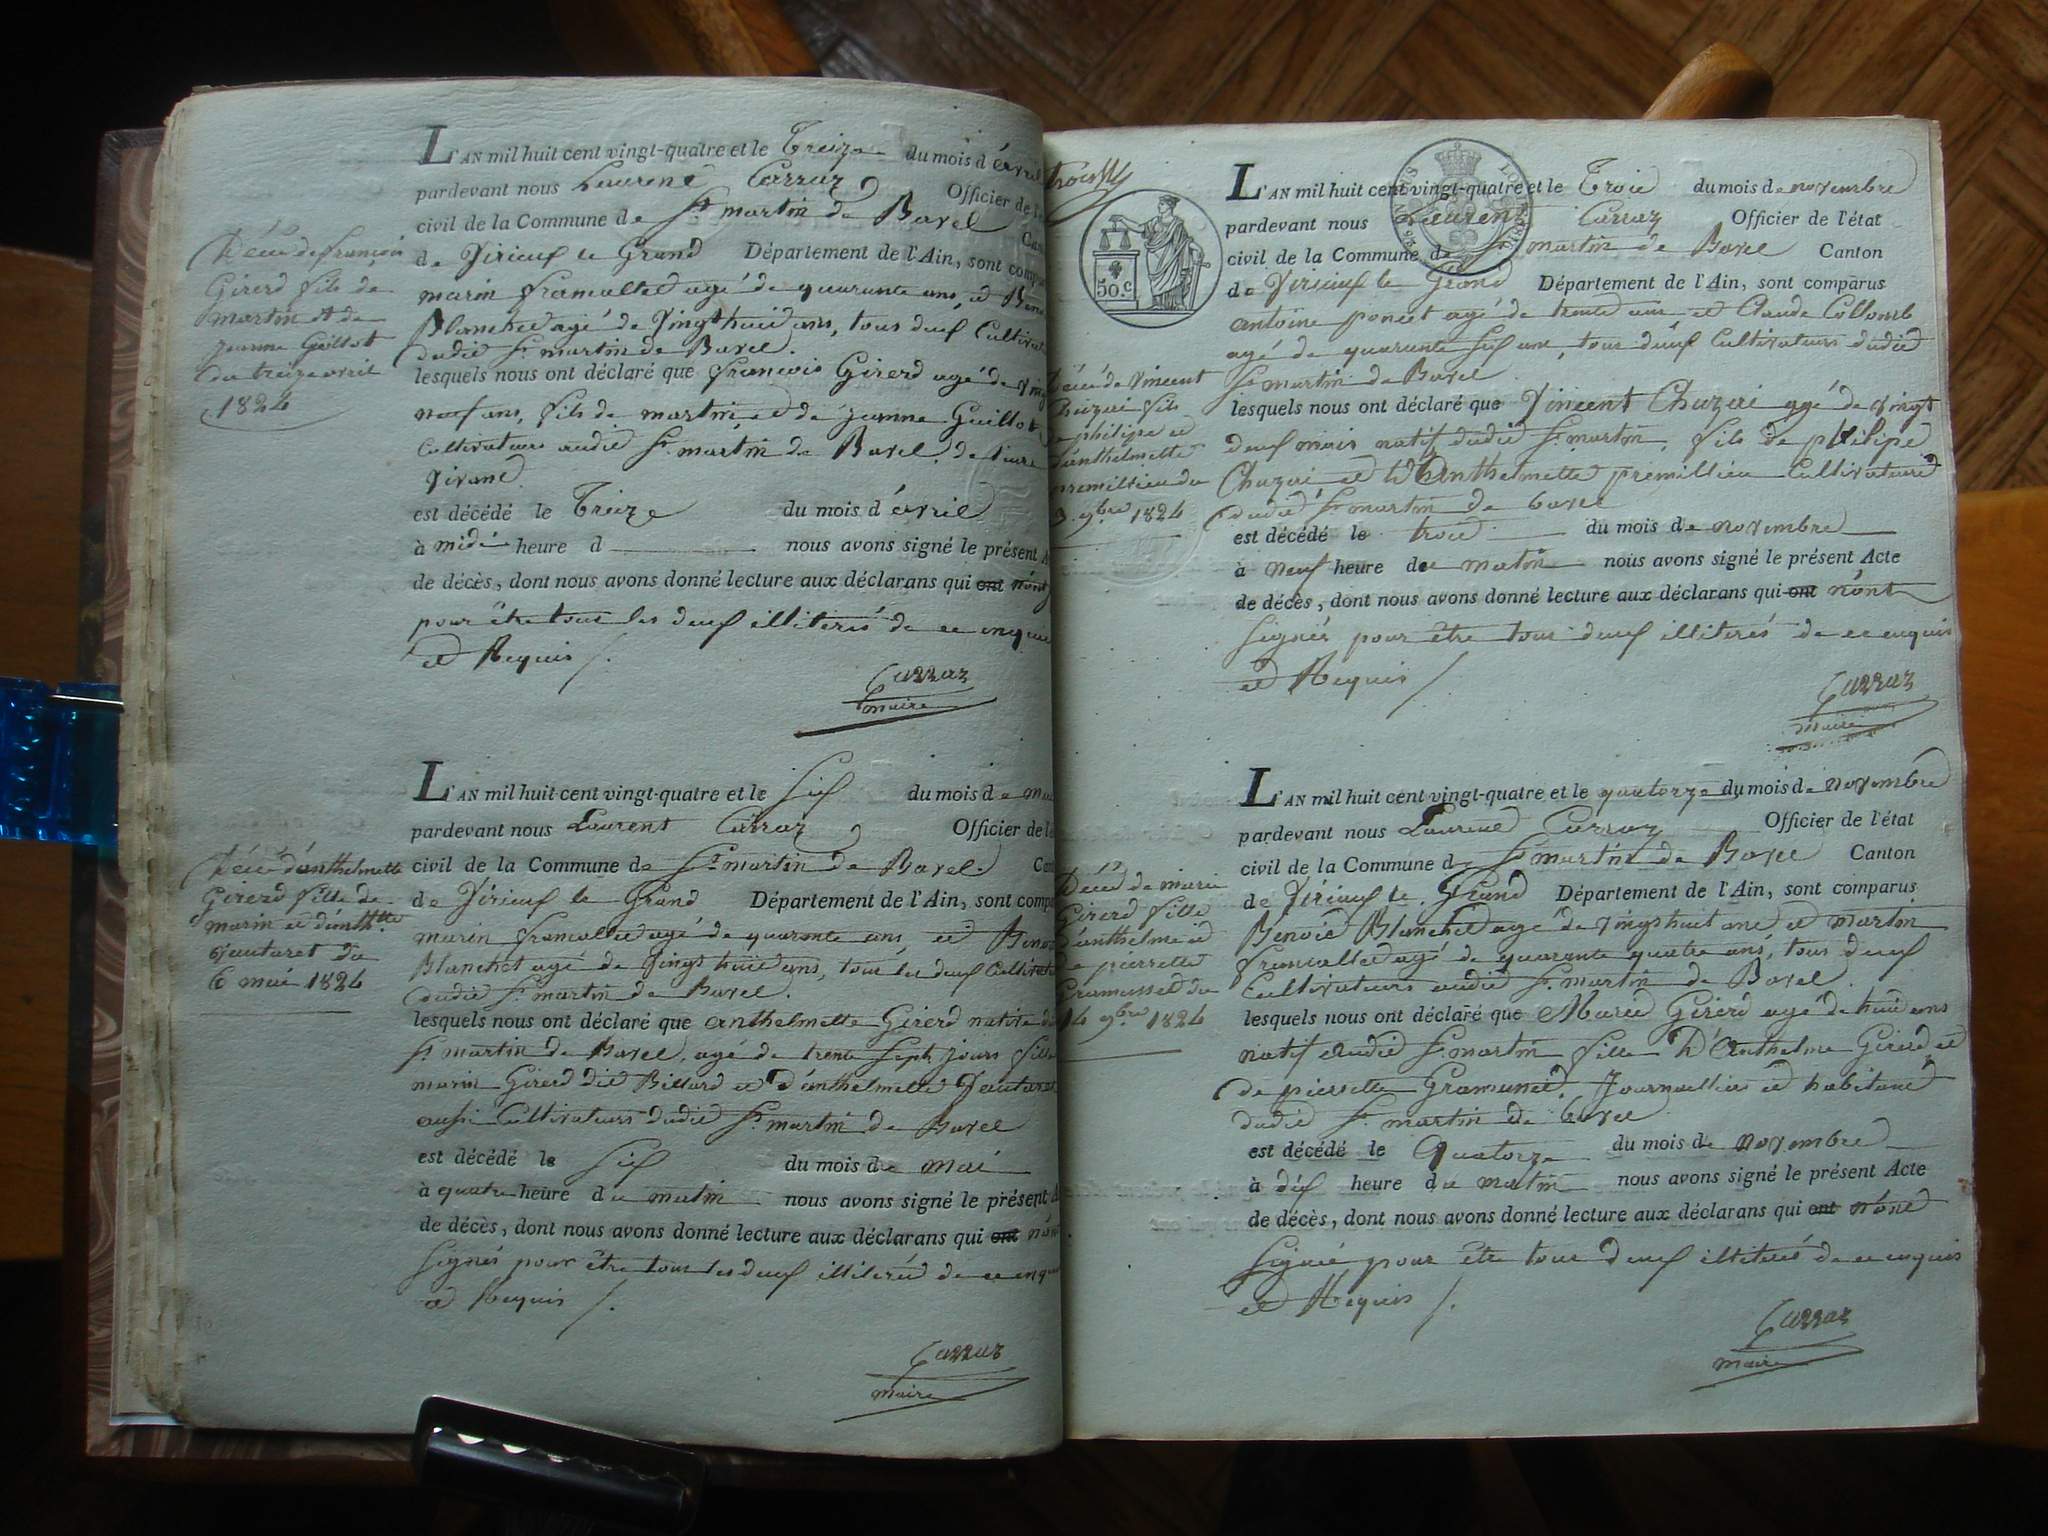 L'AN mil huit cent vingt-quatre et le Treize du mois d'avril
pardevant nous Laurent Carraz Officier de l'é
civil de la Commune de St martin de Bavel Can
de Virieux le Grand Département de l'Ain, sont comp
marin framallied agé de quarante ans, et Beno
Blanchet agé de Vingt huit ans, tous deux Cultivat
dudit St martin de Bavel.
lesquels nous ont déclaré que francois Girerd agé de ving
neuf ans, fils de martin et de jeanne Guillot
Cultivateurs audit St martin de Bavel, de leure
Vivant
est décédé le Treize du mois d'avril
à midi heure d nous avons signé le présent A
de décès, dont nous avons donné lecture aux déclarans qui ont n'ont
pour être tous les deux illiterés de ce enquis
et Requis /.
Carraz
maire
Décé de francois
Girerd fils de
martin et de
jeanne Guillot
du treize avril
1824
L'AN mil huit cent vingt-quatre et le Six du mois de mai
pardevant nous Laurent Carraz Officier de l'é
civil de la Commune de St martin de Bavel. Cant
de Virieux le Grand Département de l'Ain, sont compa
marin agé de quarante ans, et Benoi
Blanchet agé de Vingt huit ans, tous les deux Cultivat
dudit St martin de Bavel.
lesquels nous ont déclaré que anthelmette Girerd native du
St martin de Bavel, agé de trente Sept jours fille
marin Girerd dit Billard et d'anthelmette
aussi Cultivateurs dudit St martin de Bavel
est décédé le Six du mois de mai
à quatre heure du matin nous avons signé le présent A
de décès, dont nous avons donné lecture aux déclarans qui ont n'ont
Signés pour être tous les deux illiterés de ce enqui
et Requis /.
Carraz
maire
Décé d'anthelmette
Girerd fille de
marin et d'anthtte
du
6 mai 1824
50.c
L'AN mil huit cent vingt-quatre et le Trois du mois de novembre
pardevant nous Laurent Carraz Officier de l'état
civil de la Commune de St martin de Bavel Canton
de Virieux le Grand Département de l'Ain, sont comparus
antoine poncet agé de trente ans et Claude Collomb
agé de quarante Six ans, tous deux Cultivateurs dudit
St martin de Bavel
lesquels nous ont déclaré que Vincent Chazai agé de vingt
deux mois natif dudit St martin, fils de philipe
Chazai et d'Anthelmette premillieu Cultivateurs
dudit St martin de bavel
est décédé le trois du mois de novembre
à neuf heure du matin nous avons signé le présent Acte
de décès, dont nous avons donné lecture aux déclarans qui ont n'ont
Signés pour être tous deux illiterés de ce enquis
et Requis /
Carraz
maire
Décé de Vincent
Chazai fils
de philipe et
d'anthelmette
premillieu du
3 9bre 1824
L'AN mil huit cent vingt-quatre et le quatorze du mois de novembre
pardevant nous Laurent Carraz Officier de l'état
civil de la Commune de St martin de Bavel Canton
de Virieux le Grand Département de l'Ain, sont comparus
Benoit Blanchet agé de vingt huit ans et martin
agé de quarante quatre ans, tous deux
Cultivateurs audit St martin de Bavel.
lesquels nous ont déclaré que Marie Girerd agé de huit ans
natif dudit St martin fille d'Anthelme Girerd et
de pierrette Journallier et habitant
dudit St martin de bavel
est décédé le Quatorze du mois de novembre
à dix heure du matin nous avons signé le présent Acte
de décès, dont nous avons donné lecture aux déclarans qui ont n'ont
Signé pour être tous deux illiterés de ce enquis
et Requis /.
Carraz
maire
Décé de marie
Girerd fille
d'anthelme et
de pierrette
du
14 9bre 1824